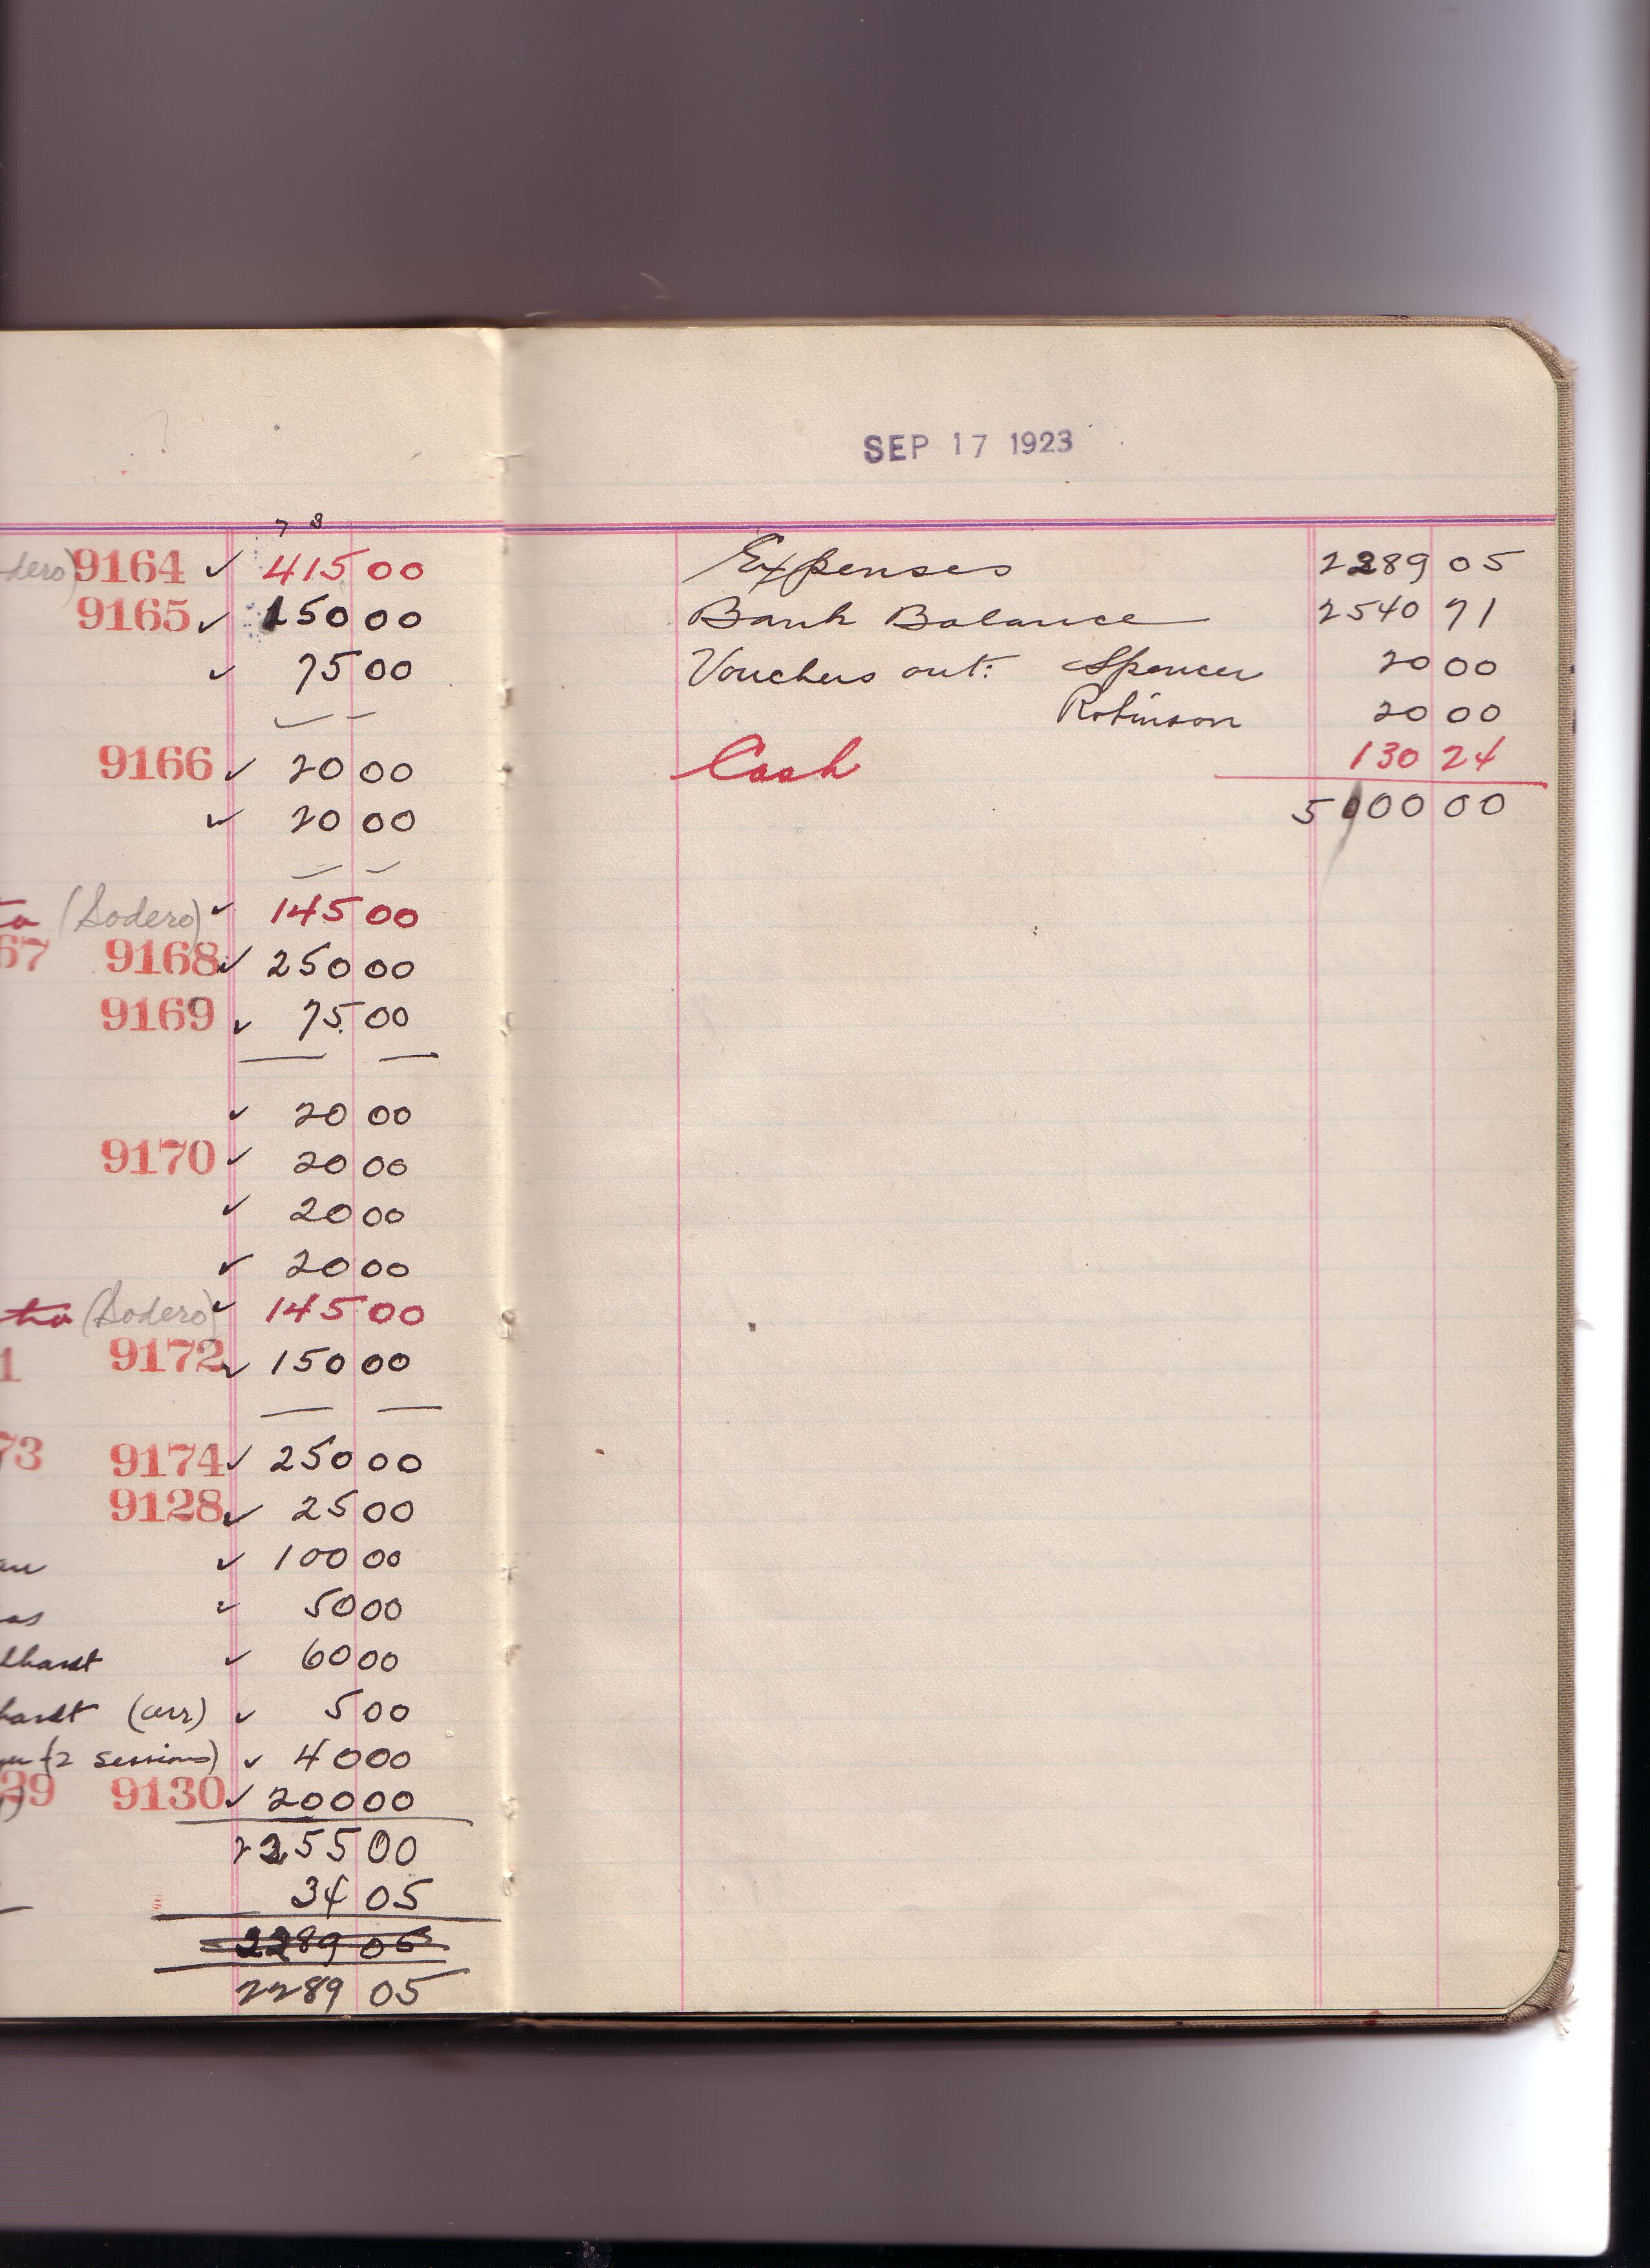 7 8
9164 ✓ 415 00
9165 ✓ 150 00
✓ 75 00
9166 ✓ 20 00
✓ 20 00
(Sodero) ✓ 145 00
67 9168 ✓ 250 00
9169 ✓ 75 00
✓ 20 00
9170 ✓ 20 00
✓ 20 00
✓ 20 00
(Sodero) ✓ 145 00
1 9172 ✓ 150 00
73 9174 ✓ 250 00
9128 ✓ 25 00
✓ 100 00
✓ 50 00
✓ 60 00
(arr) ✓ 5 00
(2 sessions) ✓ 40 00
29 9130 ✓ 200 00
2255 00
34 05
2289 05
2289 05
SEP 17 1923
Expenses 2289 05
Bank Balance 2540 71
Vouchers out: Spencer 20 00
Robinson 20 00
Cash 130 24
5000 00